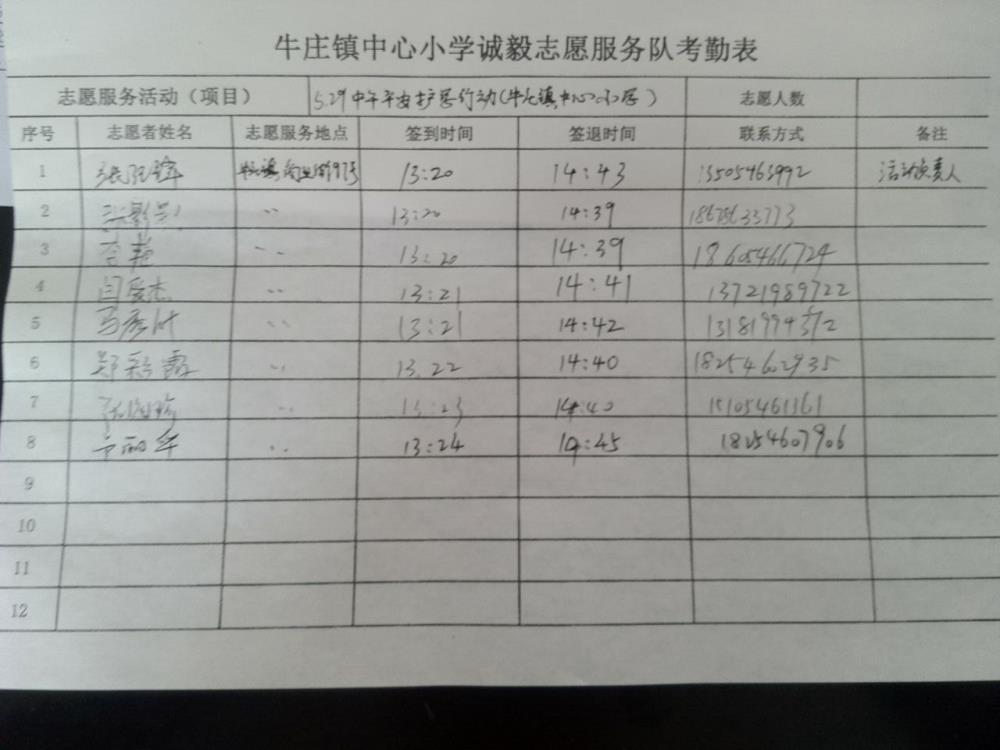 牛庄镇中心小学诚毅志愿服务队考勤表
志愿服务活动（项目） 5.29中午平安护学行动(牛庄镇中心小学) 志愿人数
序号 志愿者姓名 志愿服务地点 签到时间 签退时间 联系方式 备注
1 13:20 14:43 13505463992 活动负责人
2 〃 13:20 14:39
3 李艳 〃 13:20 14:39 18605466724
4 闫爱杰 〃 13:21 14:41 13721989722
5 马彦叶 〃 13:21 14:42
6 郑彩霞 〃 13.22 14:40 18254602935
7 〃 13:23 14:40 15105461361
8 〃 13:24 14:45 18254607906
9
10
11
12